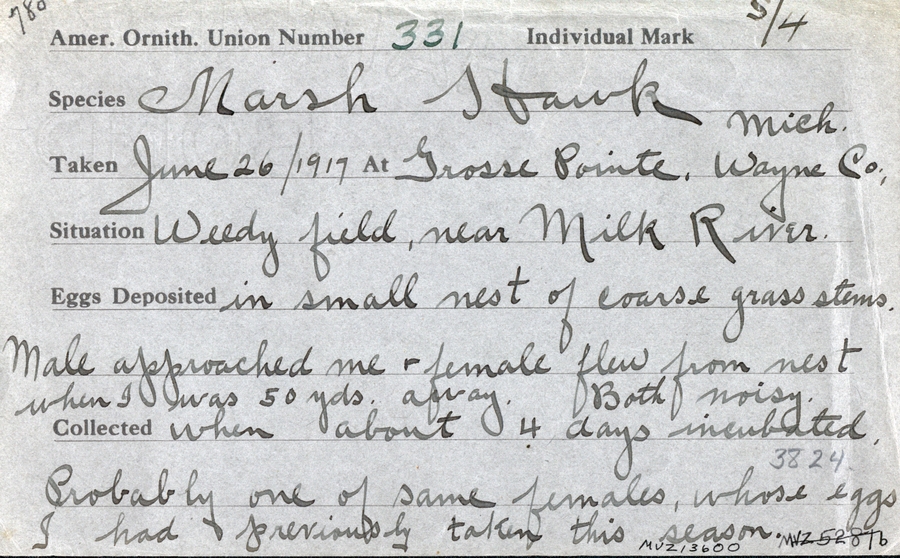 780
Amer. Ornith. Union Number 331 Individual Mark 5/4
Species Marsh Hawk
Mich.
Taken June 26/1917 At Grosse Pointe, Wayne Co.,
Situation Weedy field, near Milk River.
Eggs Deposited in small nest of coarse grass stems.
Male approached me + female flew from nest
when I was 50 yds. away. Both noisy.
Collected when about 4 days incubated.
3824
Probably one of same females, whose eggs
I had previously taken this season.
MVZ13600